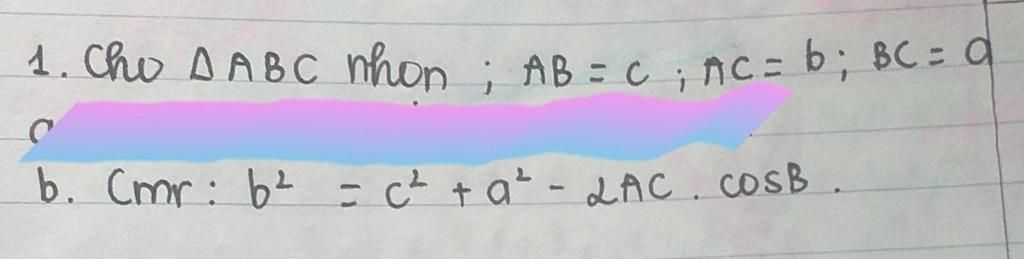 1. Cho Δ ABC nhọn ; AB = c ; AC = b ; BC = a
a
b. Cmr : b² = c² + a² - 2AC . cosB .